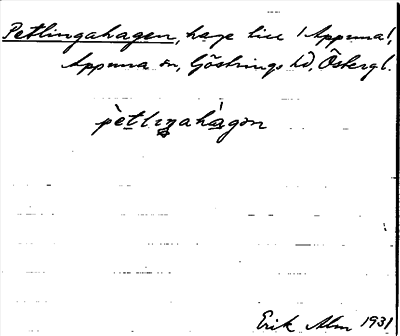 Petlingahagen, hage till 1 Appuna 1,
Appuna sn, Göstrings hd, Östergl.
pètliŋahàgən
Erik Alm 1931